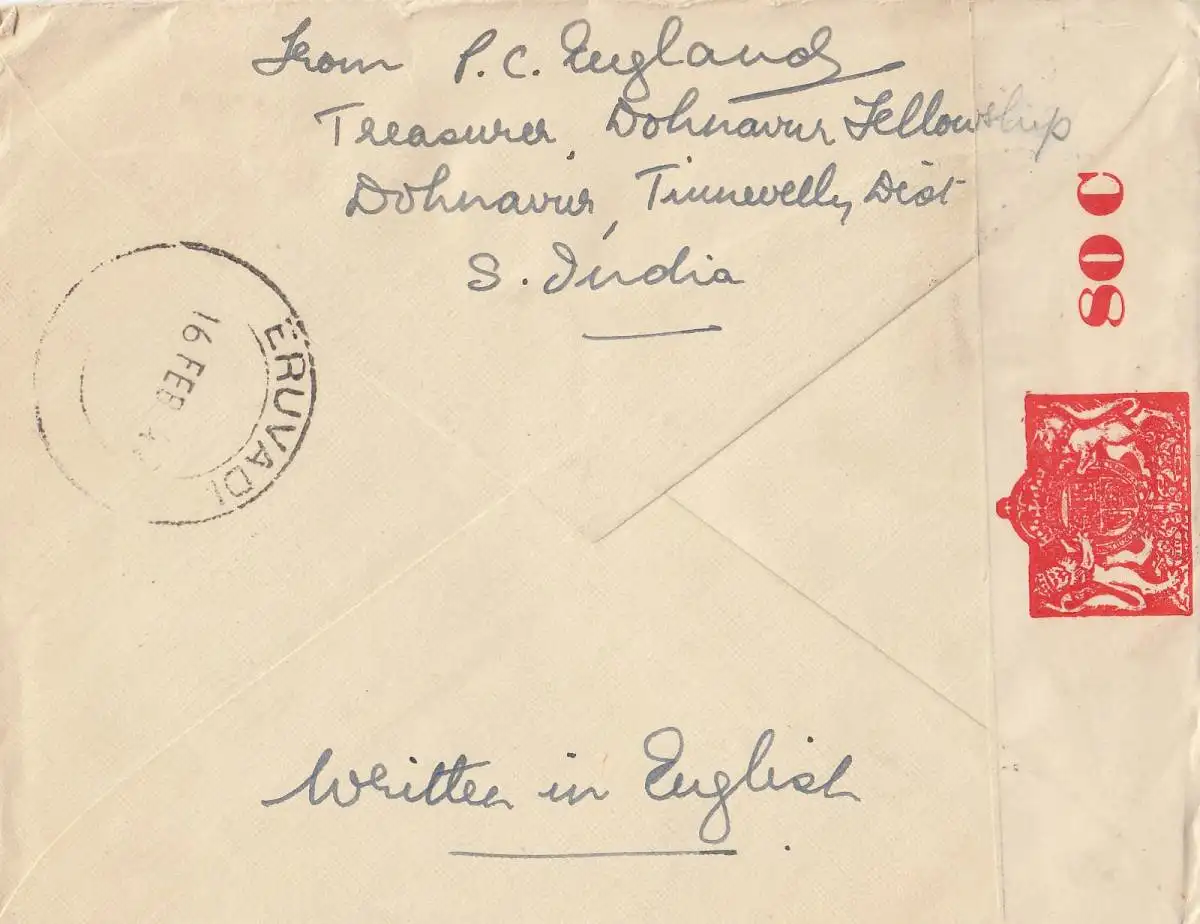 From P. C. England
Treasurer, Dohnavur Fellowship
Dohnavur, Tinnevelly Dist
S. India
ERUVADI
16 FEB
80 C
Written in English